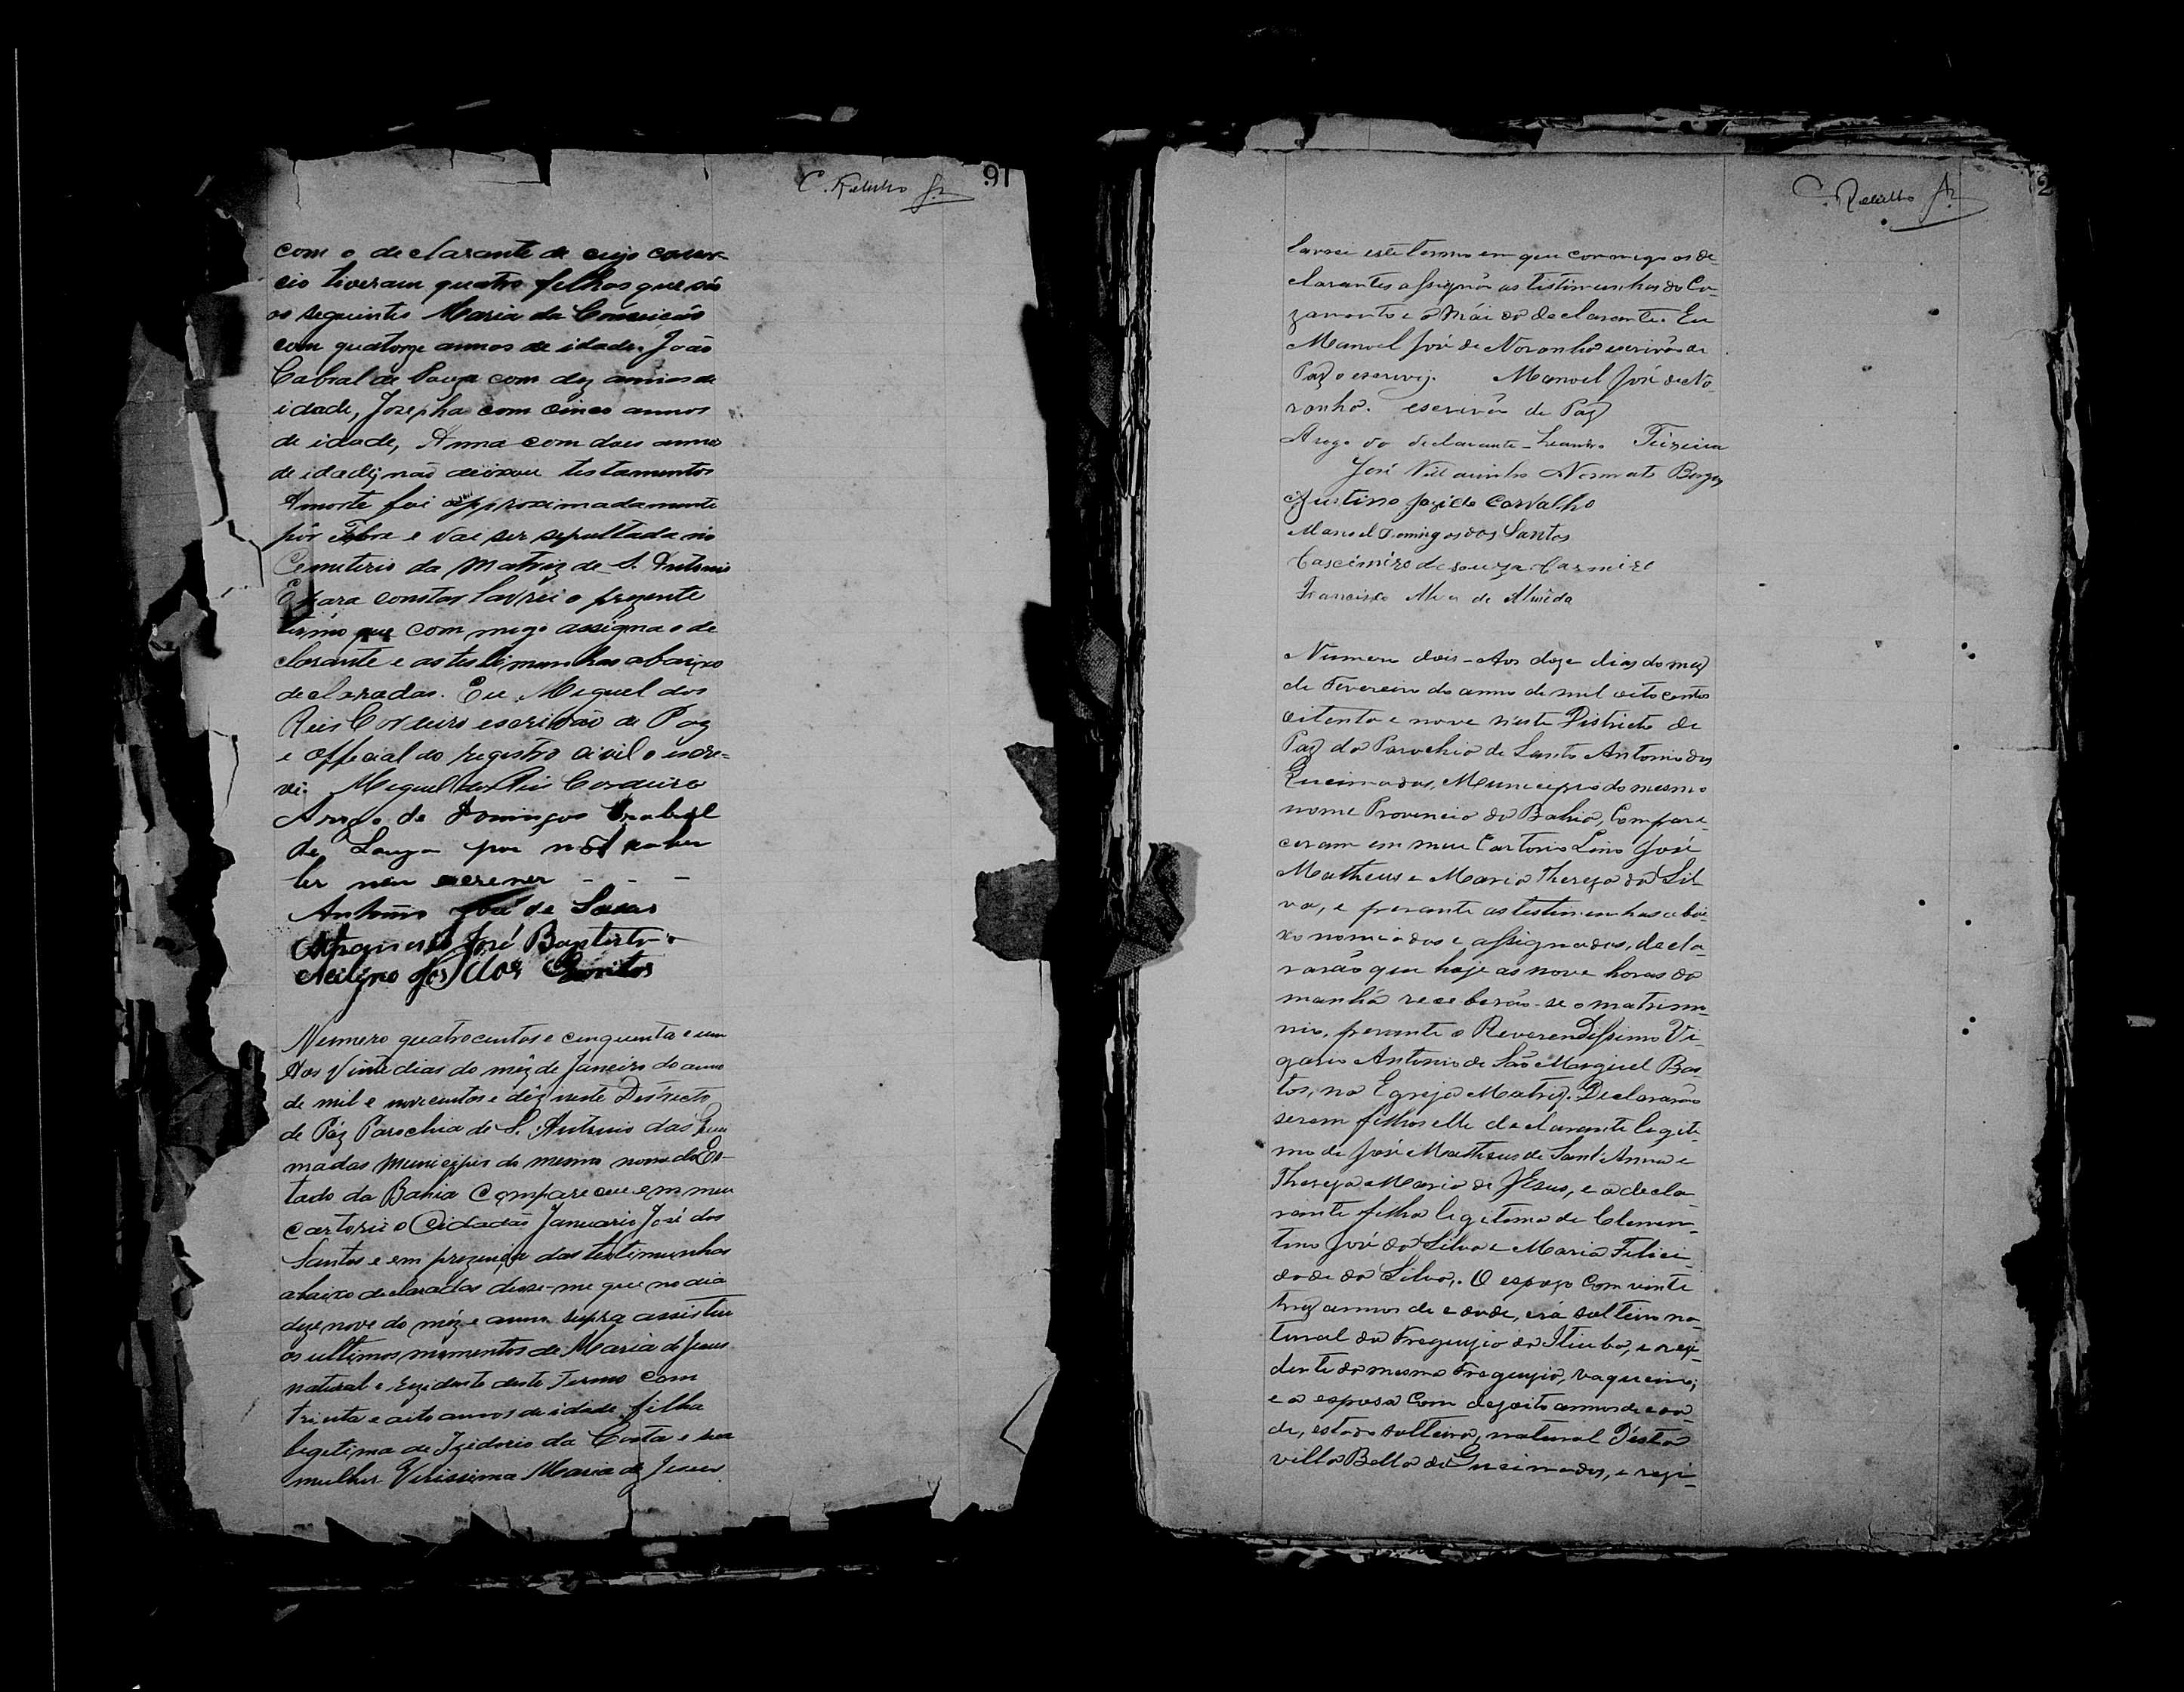 91
com o declarante de cujo consor-
cio tiveram quatro filhos que são
os seguintes Maria da Conceição
com quatorze annos de idade, João
Cabral de Souza com dez annos de
idade, Josepha com cinco annos
de idade, Anna com dois annos
de idade; não deixou testamentos
A morte foi approximadamente
por Febre e vai ser sepultada no
Cemiterio da Matriz de S. Antonio
E para constar lavrei o prezente
termo que com migo assigna o de
clarante e as testimunhas abaixo
declaradas. Eu Miguel dos
Reis Cordeiro escrivão de Paz
e Official do registro civil o escre-
vi. Miguel dos Reis Cordeiro
Arogo de Domingos Cabral
de Souza por não saber
ler nem escrever - - -
Antonio José de
José Baptista
dos Santos
Numero quatrocentos e cinquenta e um
Aos Vinte dias do mêz de Janeiro do anno
de mil e novecentos e déz neste Destricto
de Páz Parochia de S. Antonio das Quei
madas Municipio do mesmo nome do Es-
tado da Bahia Compareceu em meu
cartorio o Cidadão Januario José dos
Santos e em prezença das testimunhas
abaixo declaradas disse-me que no dia
deze nove do mêz e anno supra assistiu
os ultimos momentos de Maria de Jesus
natural e rezidente deste Termo com
trinta e oito annos de idade filha
legetima de Izidorio da Costa e sua
mulher Virissima Maria de Jesus
2
lavrei este termo em que commigo os de-
clarantes assignão as testimunhas do Ca-
zamento e a Mãi da declarante. Eu
Manoel José de Noronha escrivão de
Paz o escrevy. Manoel José de No-
ronha. escrivão de Paz
Arogo do declarante - Leandro Teixeira
José Nonnato Borges
Justino José de Carvalho
Manoel Domingos dos Santos
Cascimiro de souza
Francisco Alves de Almeida
Numero dois - Aos doze dias do mez
de Fevereiro do anno de mil oito centos
oitenta e nove n'este Districto de
Paz da Parochia de Santo Antonio das
Queimadas, Municipio do mesmo
nome Provincia da Bahia, Compare-
ceram em meu Cartorio Lino José
Matheus e Maria Thereza da Sil
va, e perante as testimunhas abai-
xo nomiadas e assignadas, decla-
rarão que hoje as nove horas da
manhã receberão-se o matrimo-
nio, perante o Reverendissimo Vi-
gario Antonio de São Miguel Bas
tos, na Egreja Matriz. Declararão
serem filhos elle declarante legiti-
mo de José Matheus de Sant'Anna e
Thereza Maria de Jesus, e a decla-
rante filha legitima de Clemen-
tino José da Silva e Maria Felici-
dade da Silva. O esposo com vinte
trez annos de edade, erá solteiro na-
tural da Freguezia do Itiuba, e rezi-
dente da mesma Freguezia, vaqueiro;
e a esposa com dezoito annos de eda-
de, estado solteira, natural D'esta
villa Bella de Queimadas, e rezi-